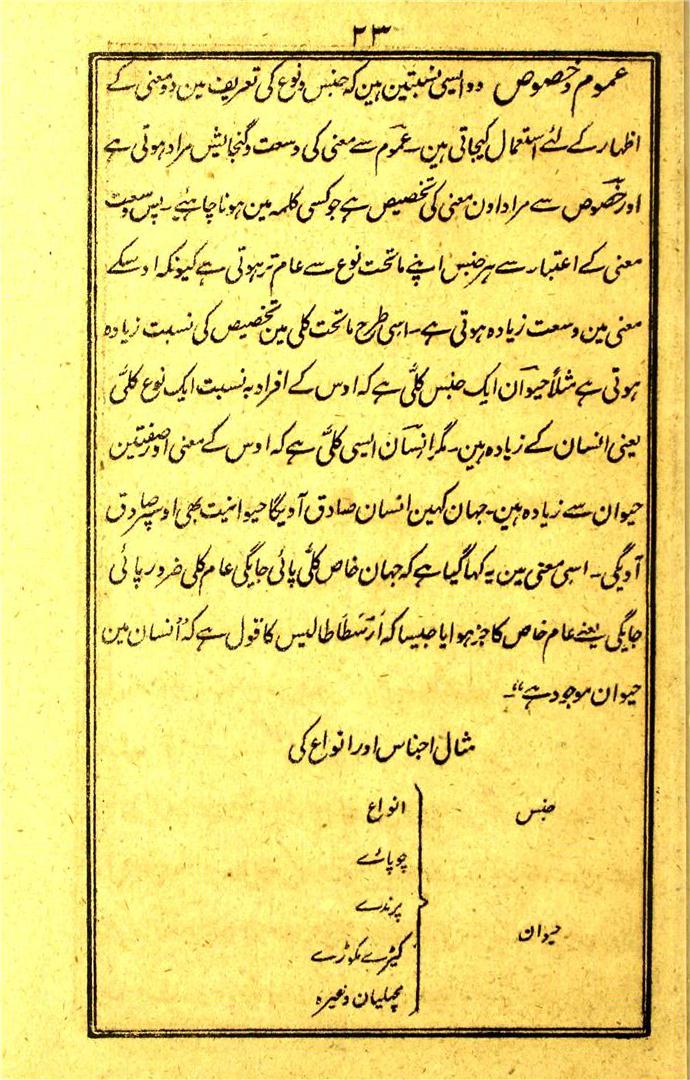 ۲۳
عموم و خصوص دو ایسی نسبتین ہین کہ جنس و نوع کی تعریف مین دو معنی کے
اظہار کے لئے استعمال کیجاتی ہین۔ عموم سے معنی کی وسعت و گنجایش مراد ہوتی ہے
اور خصوص سے مراد اون معنی کی تخصیص ہے جو کسی کلمہ مین ہونا چاہئے۔ پس وسعت
معنی کے اعتبار سے ہر جنس اپنے ماتحت نوع سے عام تر ہوتی ہے کیونکہ اوسکے
معنی مین وسعت زیادہ ہوتی ہے۔ اسی طرح ماتحت کلی مین تخصیص کی نسبت زیادہ
ہوتی ہے مثلاً حیوان ایک جنس کلّی ہے کہ اوس کے افراد بہ نسبت ایک نوع کلّی
یعنی انسان کے زیادہ ہین۔ مگر انسان ایسی کلّی ہے کہ اوس کے معنی اور صفتین
حیوان سے زیادہ ہین۔ جہان کہین انسان صادق آویگا حیوانیت بھی اوسپر صادق
آویگی۔ اسی معنی مین یہ کہا گیا ہے کہ جہان خاص کلّی پائی جایگی عام کلی ضرور پائی
جایگی یعنے عام خاص کا جز ہوا یا جیسا کہ ارسطاطالیس کا قول ہے کہ "انسان مین
حیوان موجود ہے"۔
مثال اجناس اور انواع کی
جنس
انواع
چوپائے
پرندے
حیوان
کیڑے مکوڑے
مچھلیان وغیرہ